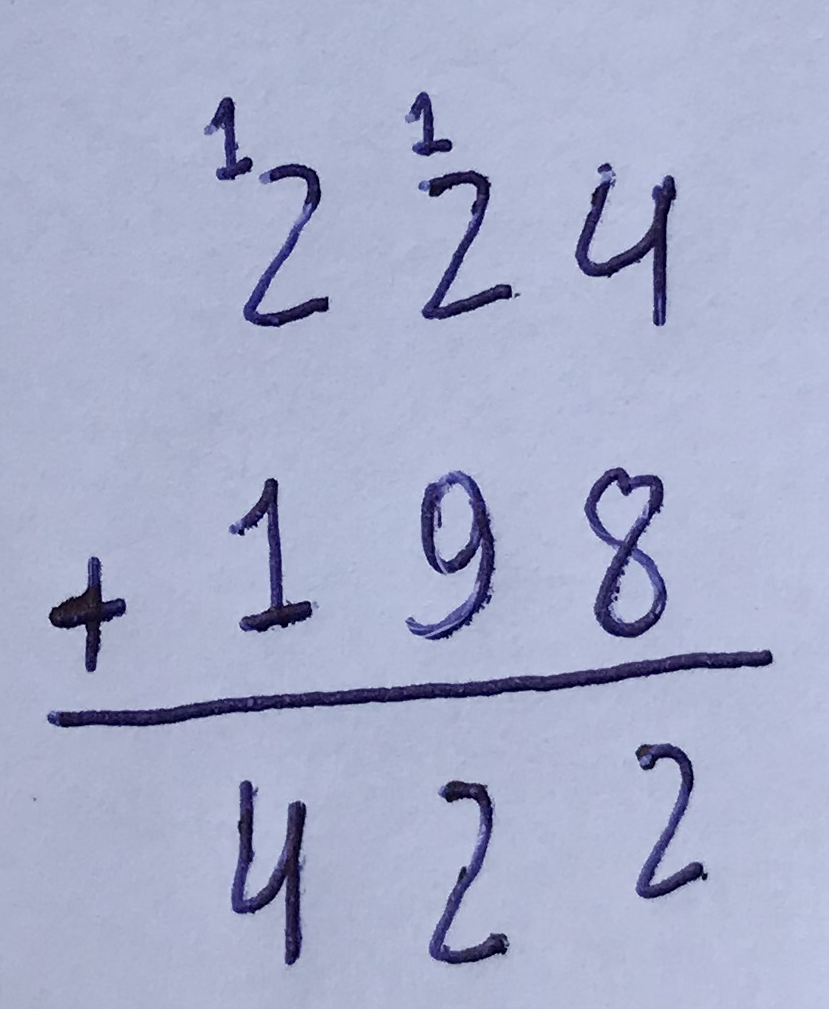 1 1
2 2 4
+ 1 9 8
4 2 2